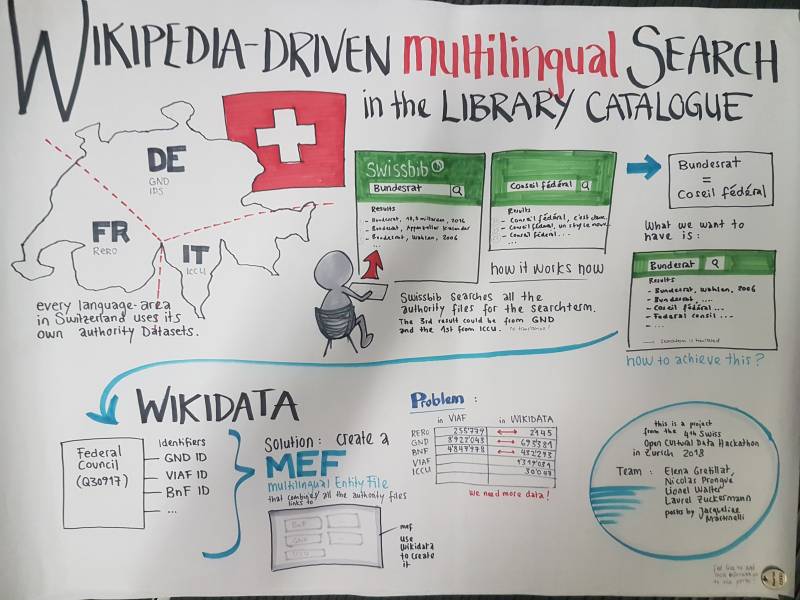 WIKIPEDIA-DRIVEN multilingual SEARCH
in the LIBRARY CATALOGUE
DE
GND
IDS
FR
RERO
IT
ICCU
every language-area
in Switzerland uses its
own authority Datasets.
Swissbib
Bundesrat
Results
- Bundesrat, 2016
- Bundesrat, Appenzeller Kalender
- Bundesrat, Wahlen, 2006
...
Conseil fédéral
Results
- Conseil fédéral, c'est
- Conseil fédéral, un style
- Conseil fédéral...
...
how it works now
Swissbib searches all the
authority files for the searchterm.
The 3rd result could be from GND
and the 1st from ICCU.
Bundesrat
=
Coseil fédéral
What we want to
have is:
Bundesrat
Results
- Bundesrat, Wahlen, 2006
- Bundesrat, ...
- Coseil fédéral ...
- Federal consil ...
- ...
searchterm is translated
how to achieve this?
WIKIDATA
Federal
Council
(Q30917)
Identifiers
GND ID
VIAF ID
BnF ID
...
Solution: create a
MEF
multilingual Entity File
that combines all the authority files
links to
BnF
GND
mef
use
Wikidata
to create
it
Problem:
in VIAF
in WIKIDATA
RERO
GND
BNF
VIAF
ICCU
2145
We need more data!
this is a project
from the 4th Swiss
Open Cultural Data Hackathon
in Zurich 2018
Team: Elena Gretillat,
Nicolas Prongué
Lionel Walter
Laurel Zuckermann
poster by Jacqueline
Martinelli